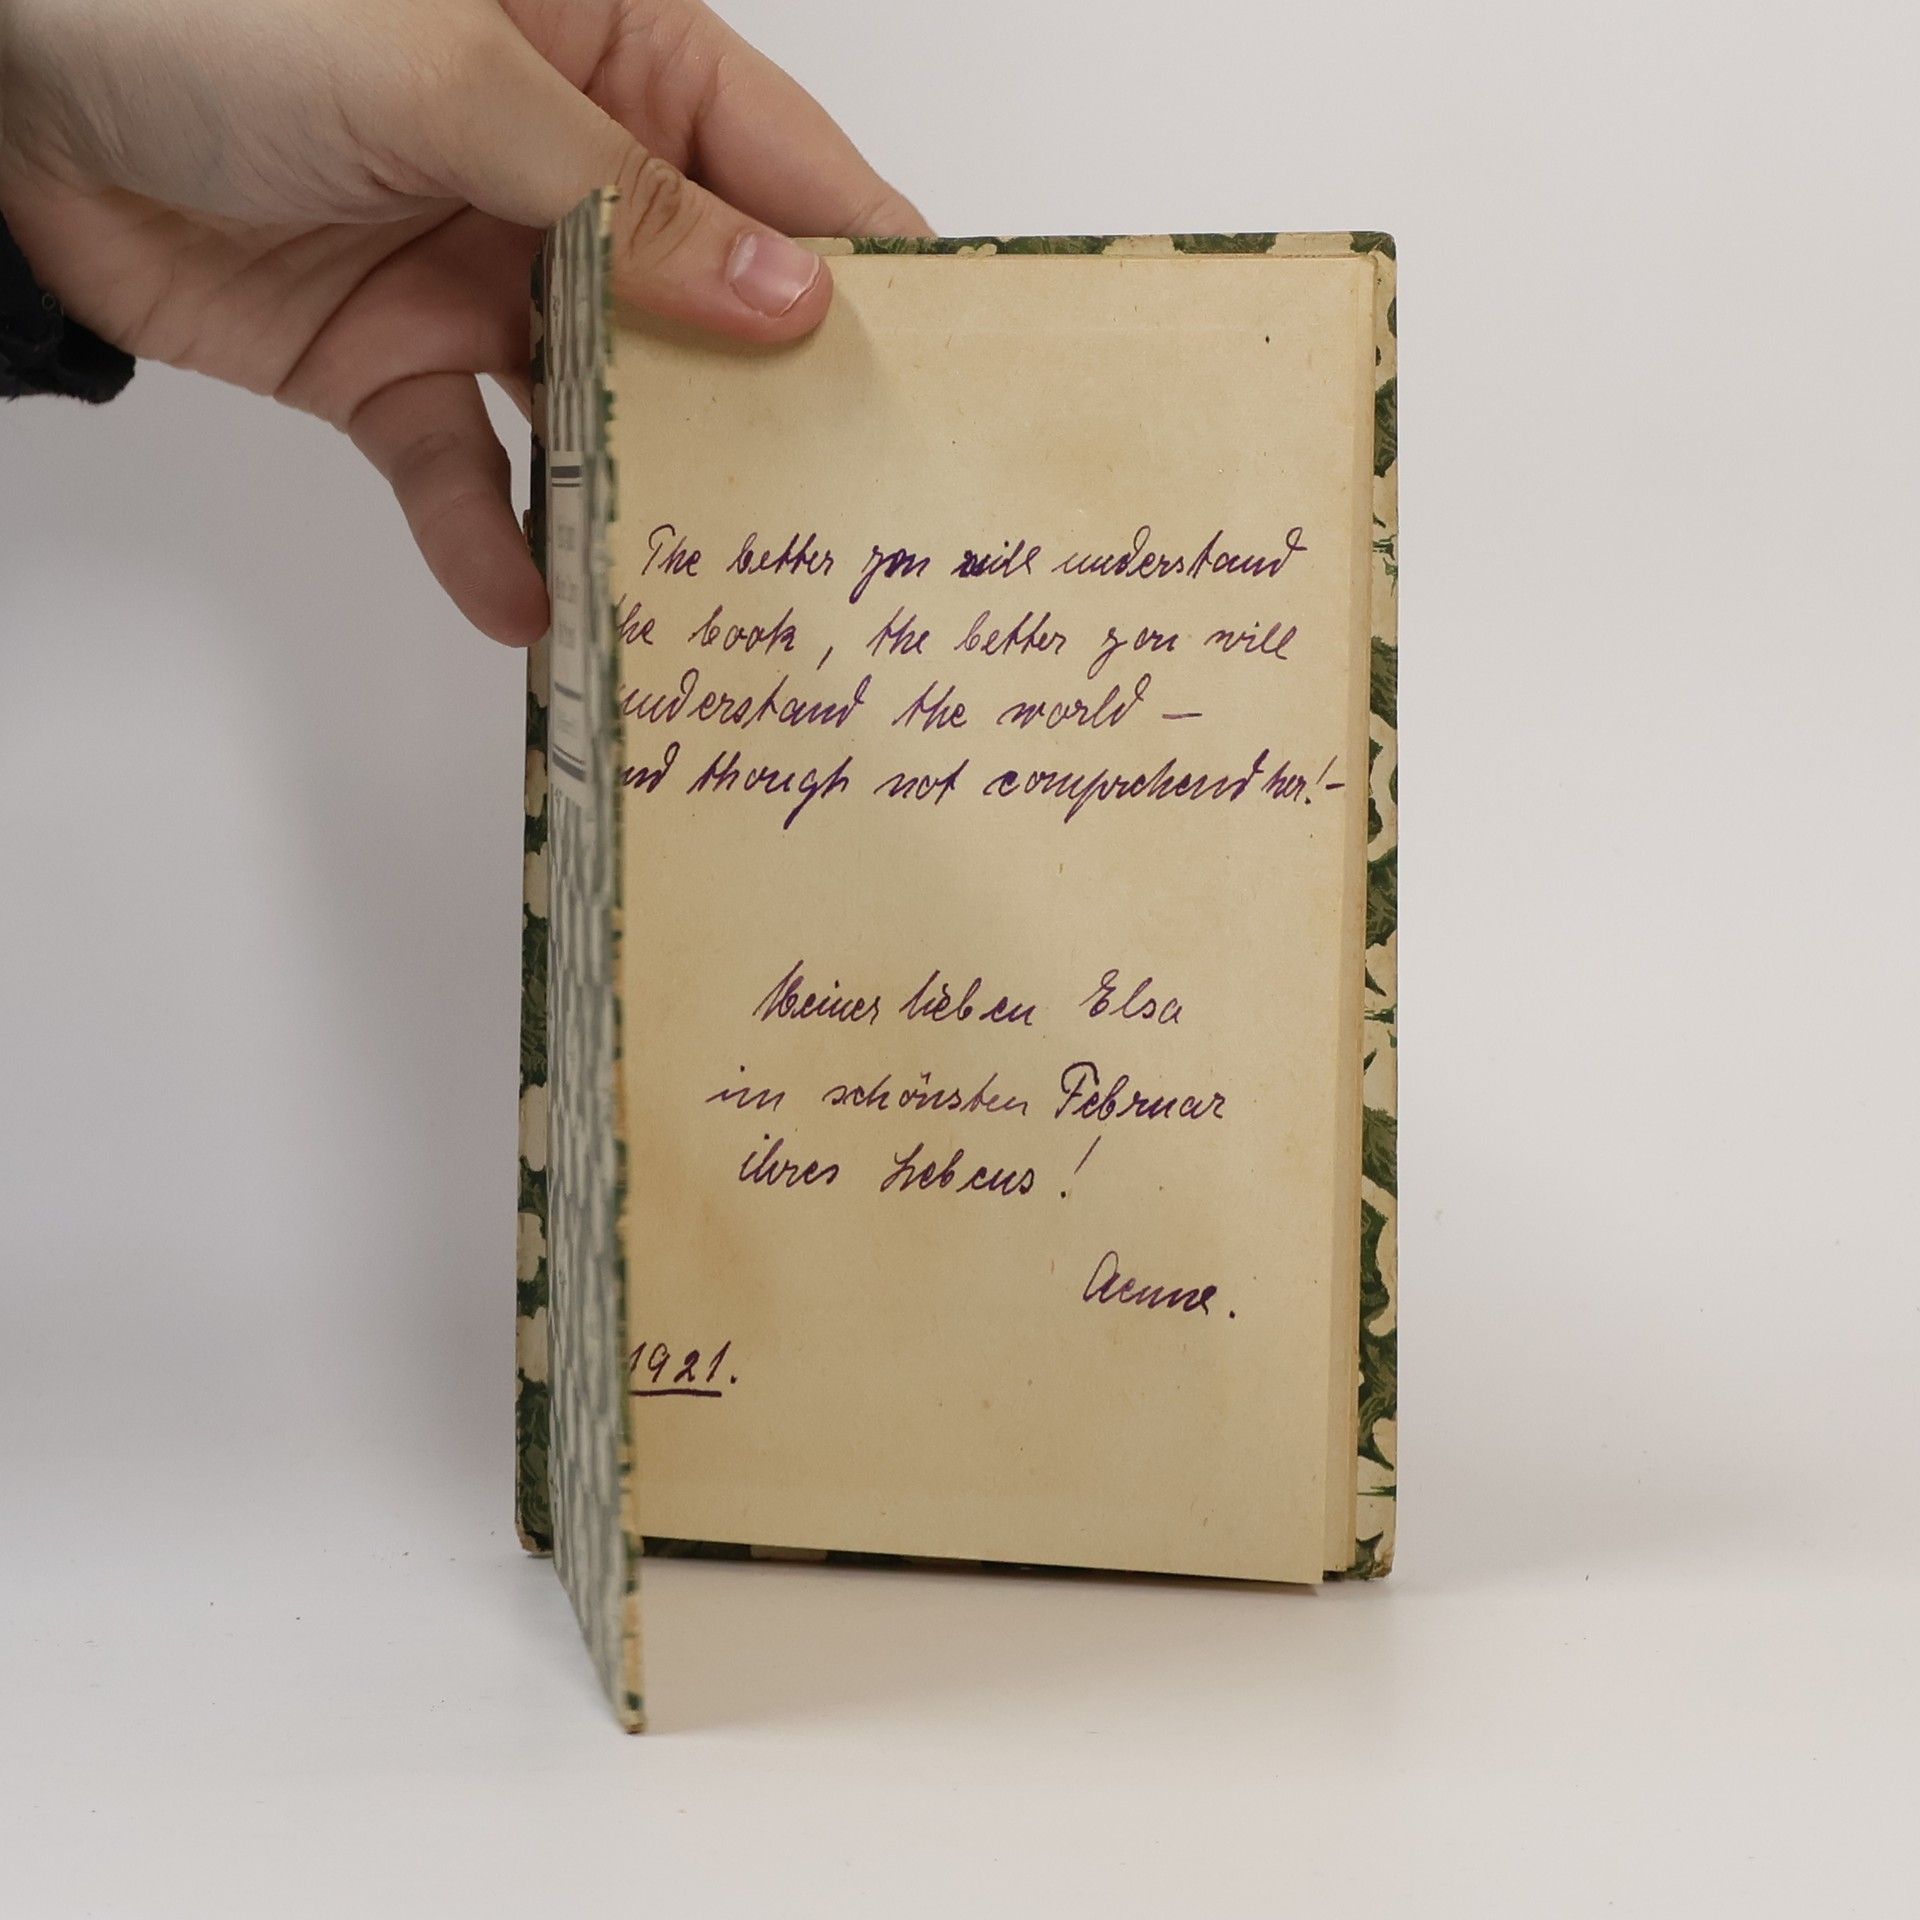 The better you will understand
the book, the better you will
understand the world —
and though not comprehend her! –
Meiner lieben Elsa
im schönsten Februar
ihres Lebens!
Aenne.
1921.